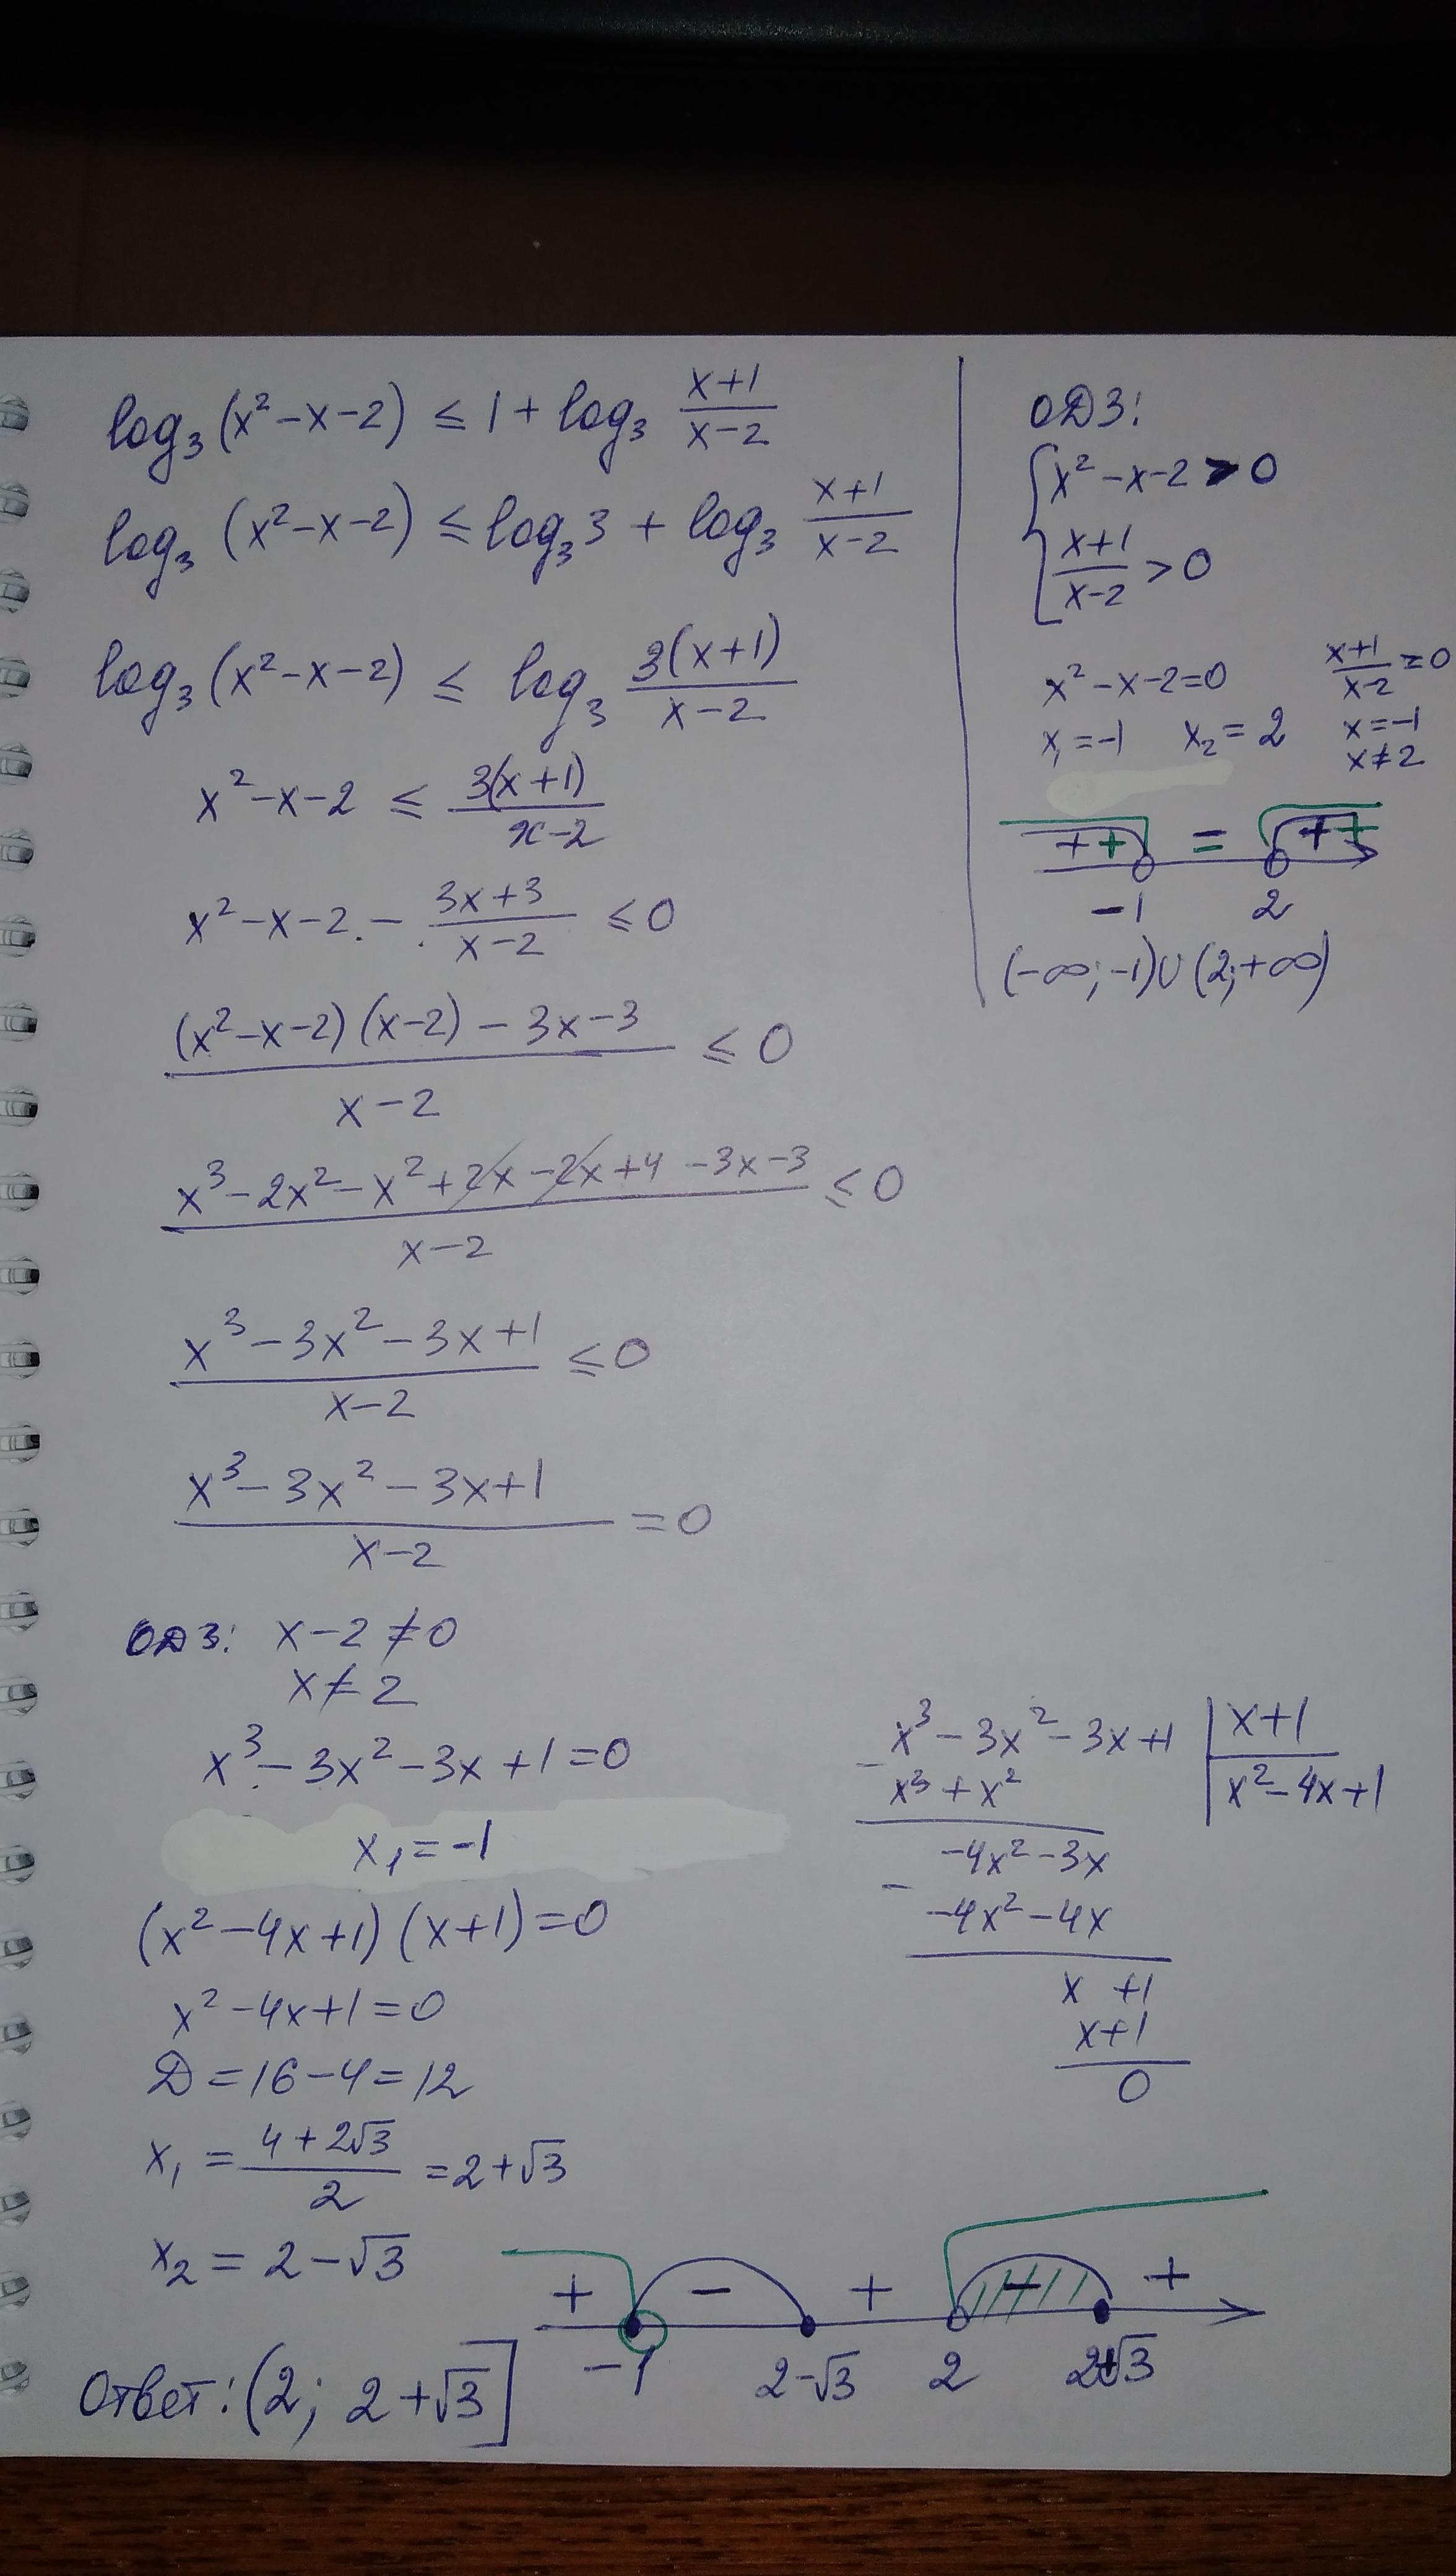 log₃(x²-x-2) ≤ 1 + log₃ (x+1)/(x-2)
log₃ (x²-x-2) ≤ log₃3 + log₃ (x+1)/(x-2)
log₃(x²-x-2) ≤ log₃ 3(x+1)/(x-2)
x²-x-2 ≤ 3(x+1)/(x-2)
x²-x-2 - (3x+3)/(x-2) ≤ 0
((x²-x-2)(x-2) - 3x-3)/(x-2) ≤ 0
(x³-2x²-x²+2x-2x+4-3x-3)/(x-2) ≤ 0
(x³-3x²-3x+1)/(x-2) ≤ 0
(x³-3x²-3x+1)/(x-2) = 0
ОДЗ: x-2 ≠ 0
x ≠ 2
x³-3x²-3x+1=0
x₁=-1
(x²-4x+1)(x+1)=0
x²-4x+1=0
D=16-4=12
x₁ = (4+2√3)/2 = 2+√3
x₂ = 2-√3
Ответ: (2; 2+√3]
ОДЗ:
{x²-x-2 > 0
(x+1)/(x-2) > 0
x²-x-2=0 (x+1)/(x-2) = 0
x₁=-1 x₂=2 x=-1
x≠2
++ = ++
-1 2
(-∞;-1)∪(2;+∞)
x³-3x²-3x+1 | x+1
- x³+x² x²-4x+1
-4x²-3x
-
-4x²-4x
x +1
x+1
0
+ - + - +
-1 2-√3 2 2+√3